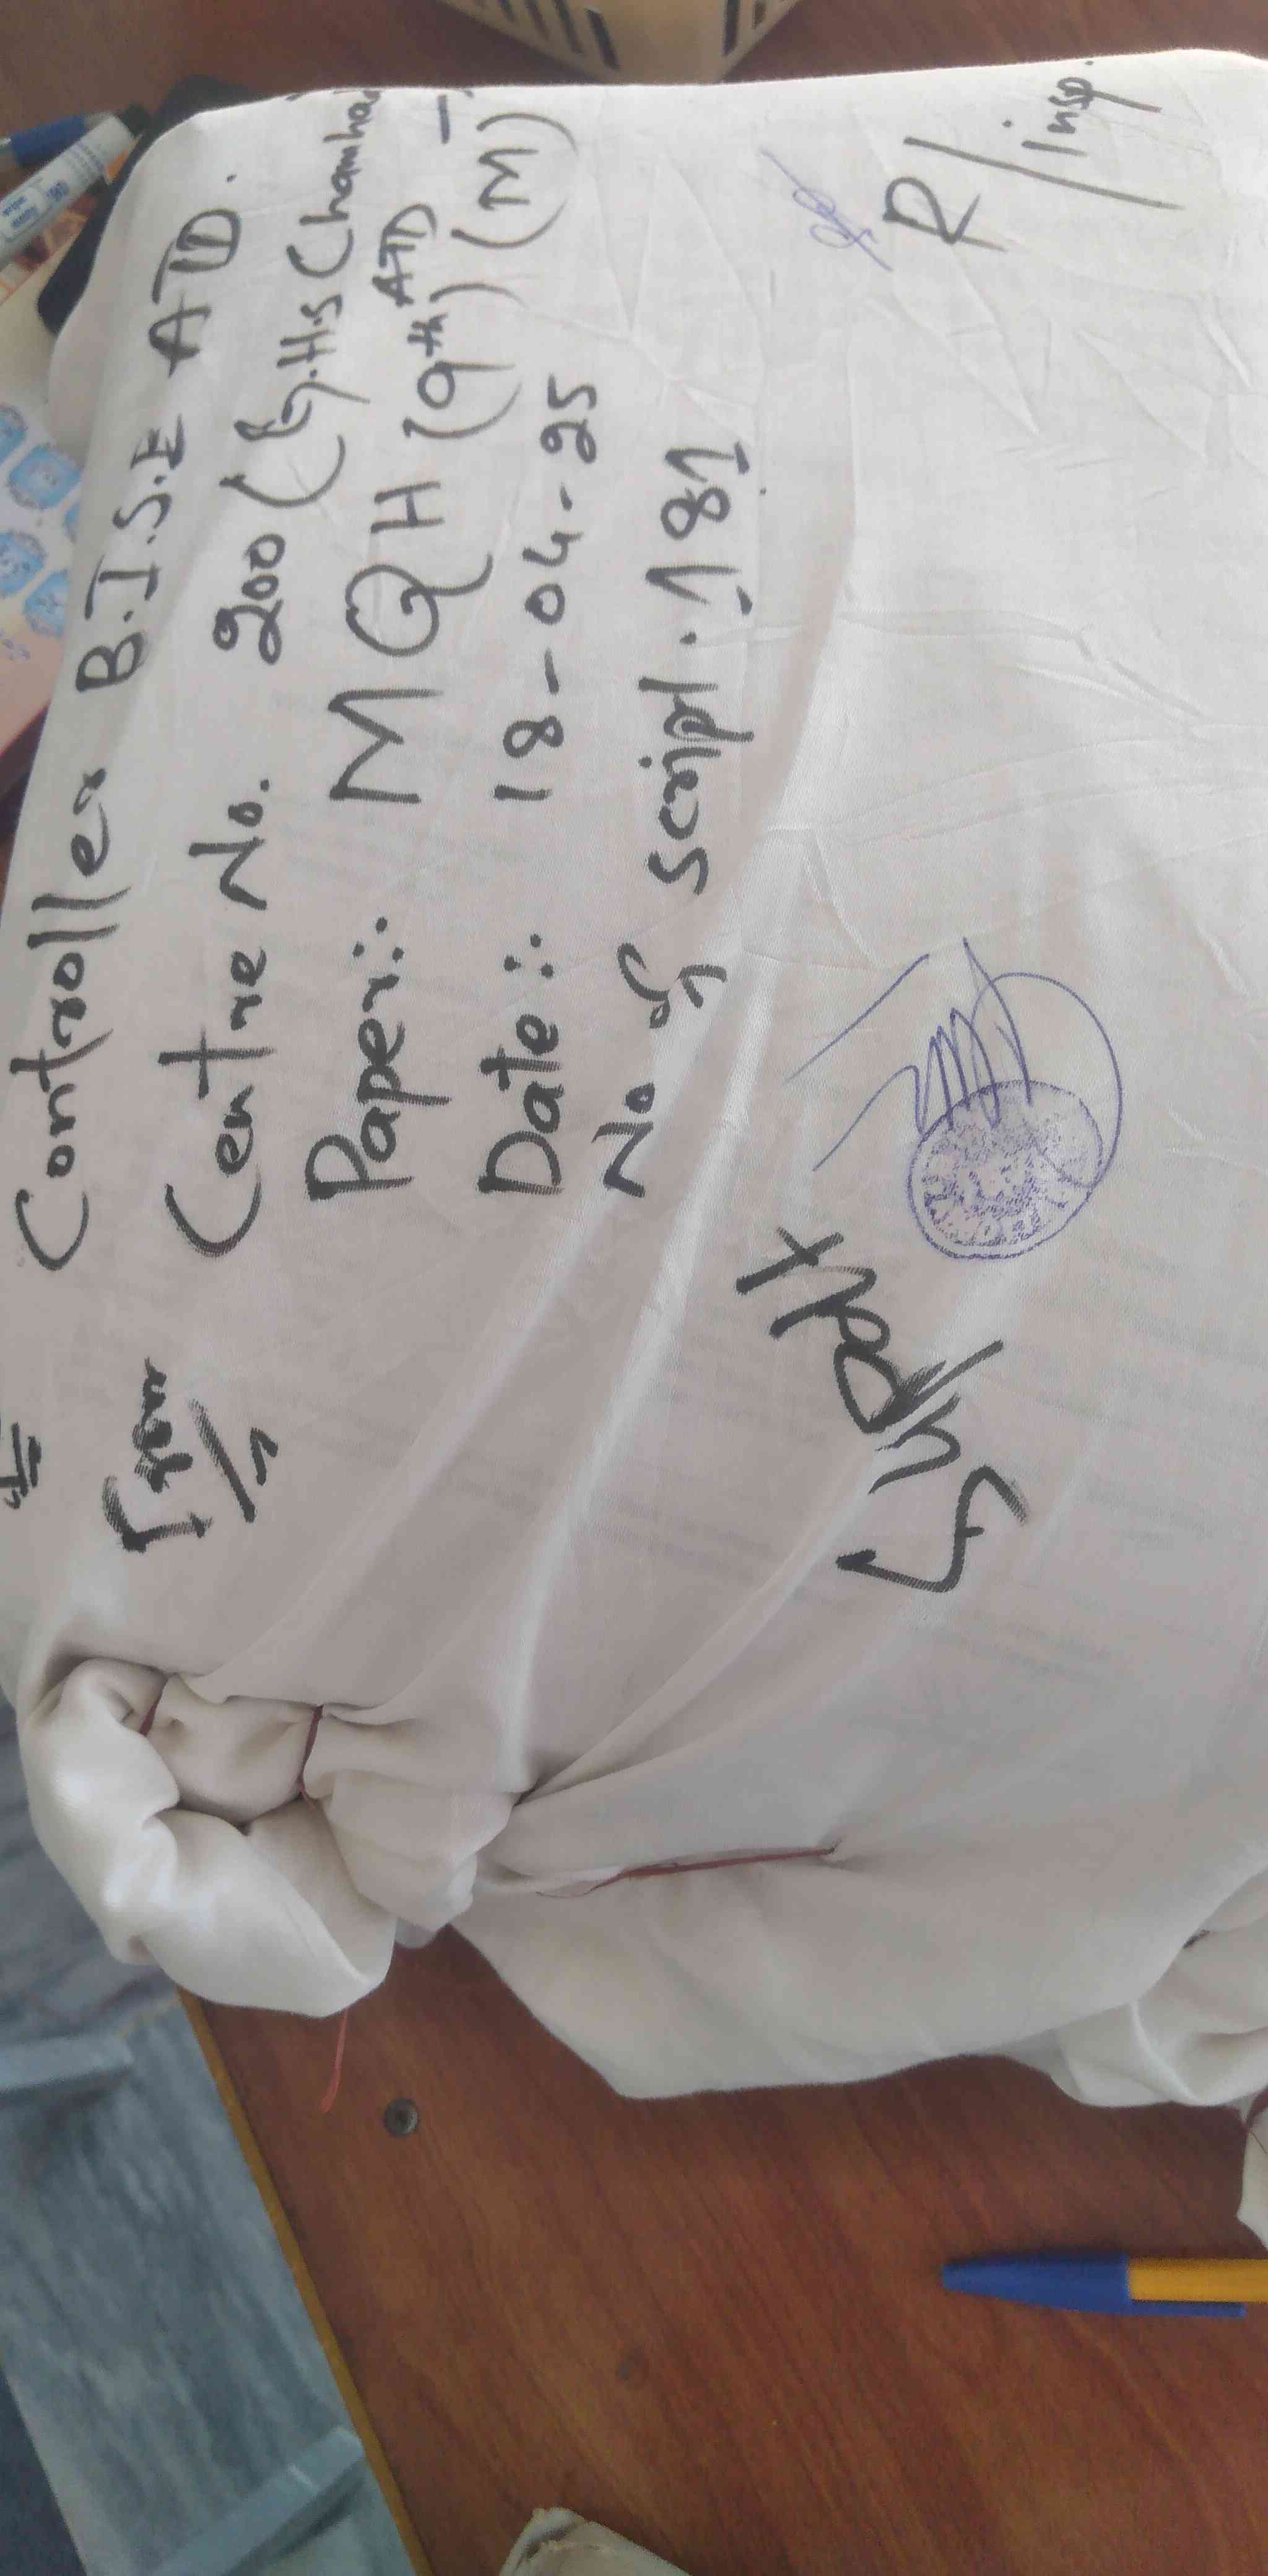 Controller B.I.S.E ATD.
Centre No. 200 (G.H.S Chamha
ATD
Paper:- MQH (9th) (M)
Date:- 18-04-25
No. of script. 181
Supdt
R/Insp.